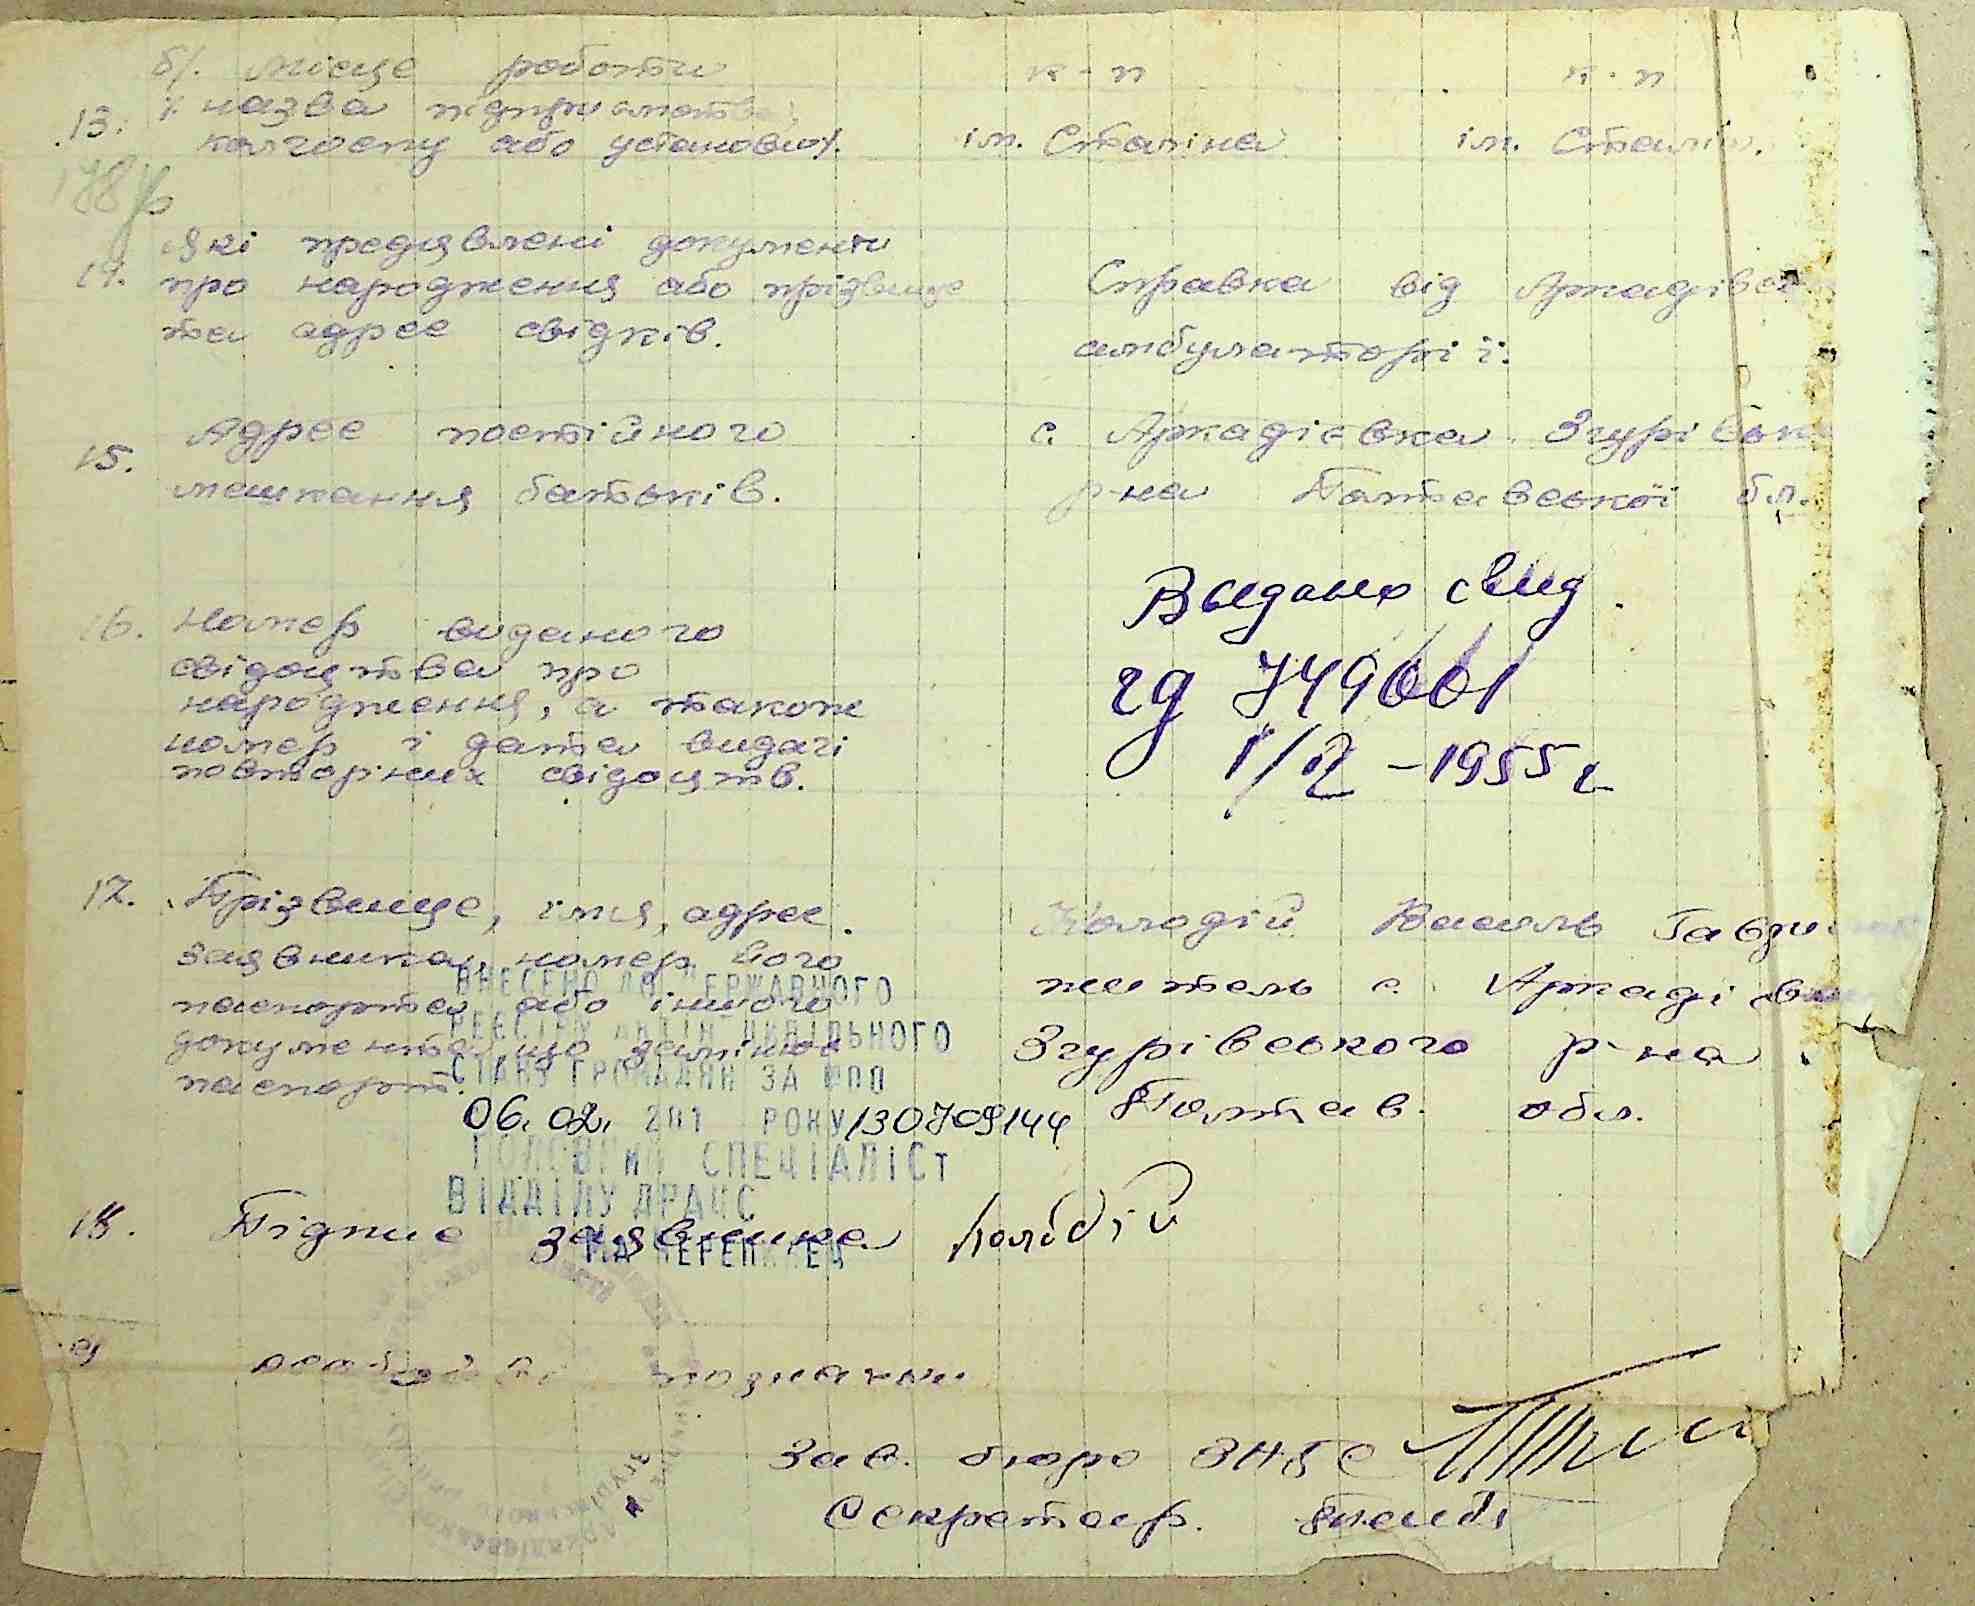 б/. місце роботи к-п к-п
13. /. назва підприємства,
колгоспу або установи/. ім. Сталіна ім. Сталін.
Які предявлені документи
14. про народження або прізвище Справка від Аркадівської
та адрес свідків. амбулаторії.
Адрес постійного с. Аркадієвка Згурівськ
15. мешкання батьків. р-на Полтавської обл.
Выдано свид.
16. Номер виданого
свідоцтва про гд 749661
народження, а також
номер і дата видачі 1/II – 1955 г
повторних свідоцтв.
17. Прізвище, імя, адрес Колодій Василь
заявника, номер його житель с. Аркадієвка
паспорта або іншого Згурівського р-на
документа що заміняє Полтав. обл.
паспорт.
ВНЕСЕНО ДО ДЕРЖАВНОГО
РЕЄСТРУ АКТІВ ЦИВІЛЬНОГО
СТАНУ ГРОМАДЯН ЗА №ПП
06.02. 201 РОКУ 130709144
ГОЛОВНИЙ СПЕЦІАЛІСТ
ВІДДІЛУ ДРАЦС
18. Підпис заявника Колодій
19 особливі познаки
Зав. бюро ЗАГС
Секретар.